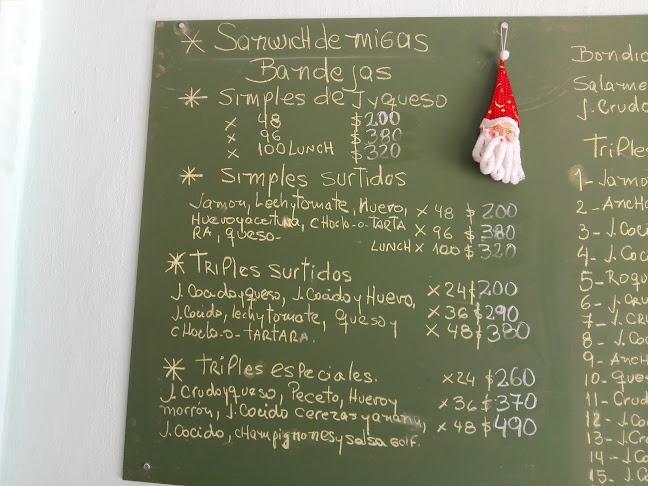 * Sanwich de migas
Bandejas
* Simples de J y queso
x 48 $200
x 96 $380
x 100 LUNCH $320
* Simples surtidos
Jamon, Lech y tomate, Huevo, x 48 $200
Huevo y aceituna, CHoclo-o-TARTA x 96 $380
RA, queso- LUNCH x 100 $320
* TRiples surtidos
J. Cocido y queso, J. Cocido y Huevo, x 24 $200
J. Cocido, lech y tomate, queso y x 36 $290
CHoclo-o-TARTARA. x 48 $380
* Triples especiales. x 24 $260
J. Crudo y queso, Peceto, Huevo y x 36 $370
morrón, J. Cocido cerezas y anana, x 48 $490
J. Cocido, champignones y salsa GOLF.
Bondio
Salame
J. Crudo
Triples
1- Jamo
2- Ancho
3- J. Coci
4- J. Co
5- Roqu
6- J. CRU
7- J. CRU
8- J. Coc
9- Anch
10- Que
11- Crud
12- J. Co
13- J. Cr
14- J. Co
15- J. Co